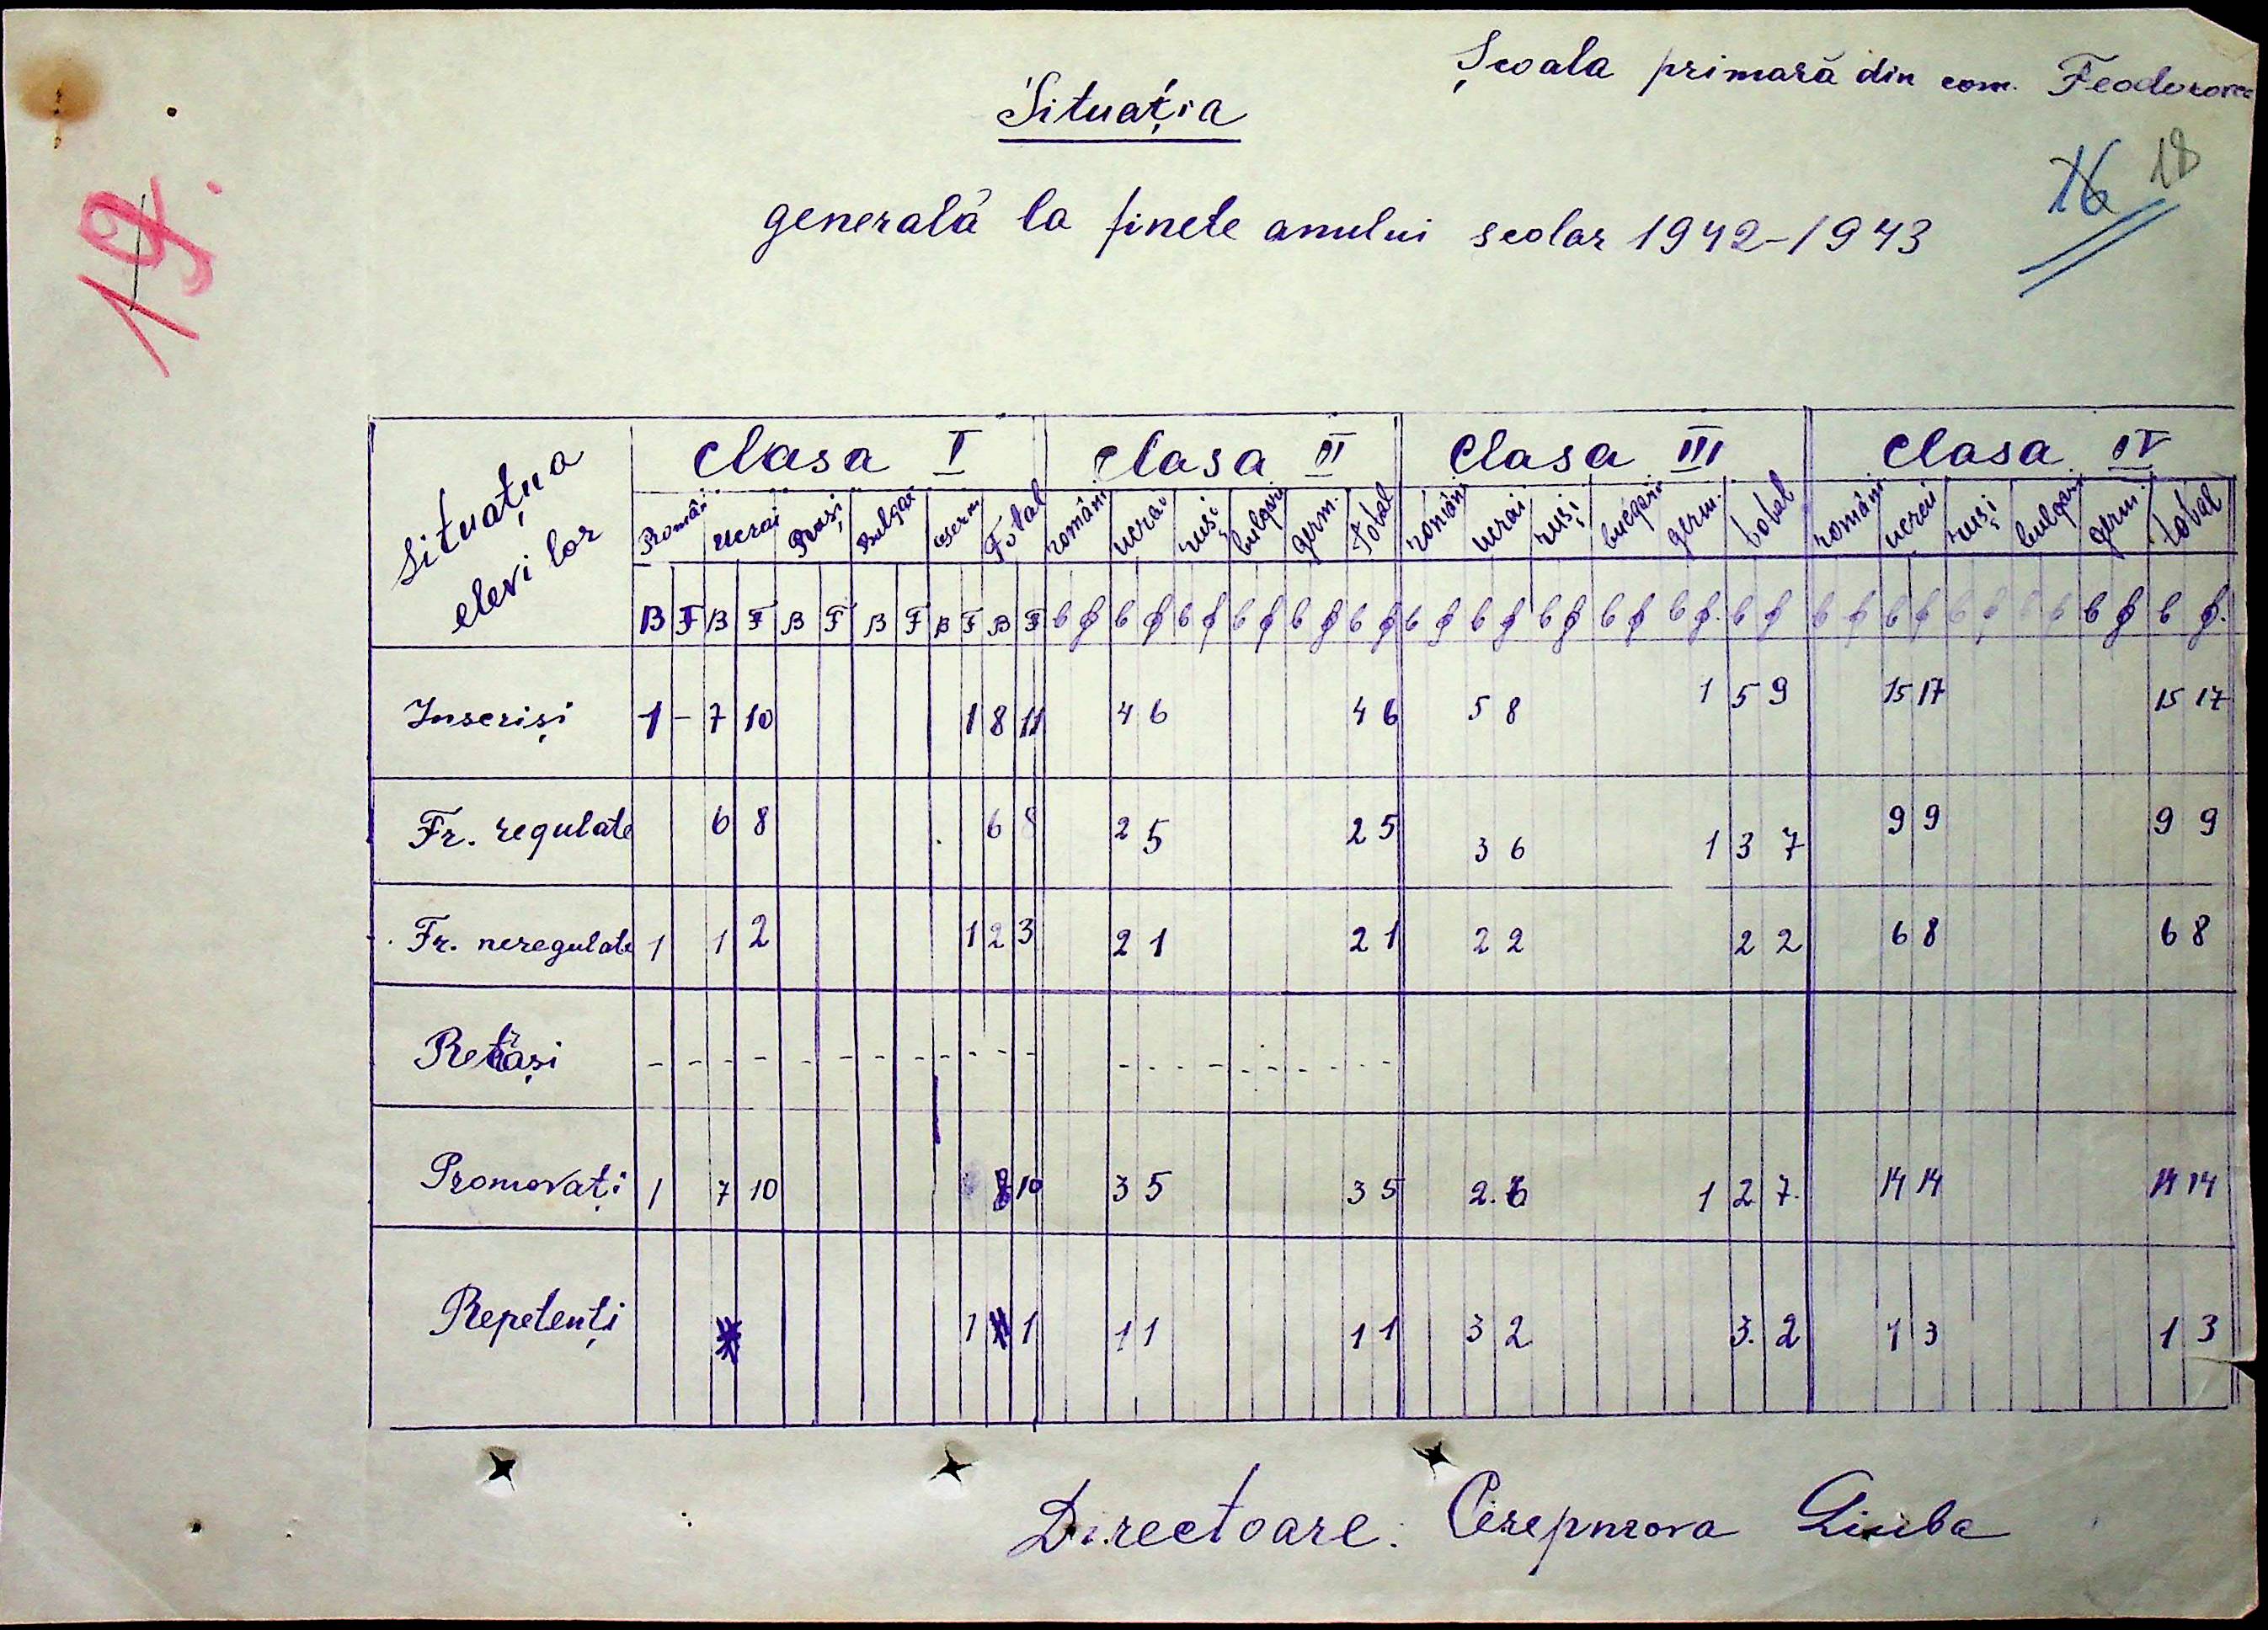 Școala primară din com. Feodorovca
Situația
16 18
19.
generală la finele anului scolar 1942-1943
Situațiua elevilor
Clasa I Clasa II Clasa III Clasa IV
Români Ucrai Ruși Bulgar Germ Total români ucrai ruși bulgari germ. total români ucrai ruși bulgari germ. total români ucrai ruși bulgari germ. total
B F B F B F B F B F B F b f b f b f b f b f b f b f b f b f b f b f. b f b f b f b f b f b f b f.
Inseriși 1 - 7 10 1 8 11 4 6 4 6 5 8 1 5 9 15 17 15 17
Fr. regulate 6 8 6 8 2 5 2 5 3 6 1 3 7 9 9 9 9
Fr. neregulate 1 1 2 1 2 3 2 1 2 1 2 2 2 2 6 8 6 8
Retăași - - - - - - - - - - - - - - - - - - - - - -
Promovați 1 7 10 8 10 3 5 3 5 2. 6 1 2 7. 14 14 14 14
Repetenți 1 1 1 1 1 1 3 2 3. 2 1 3 1 3
Directoare: Liuba